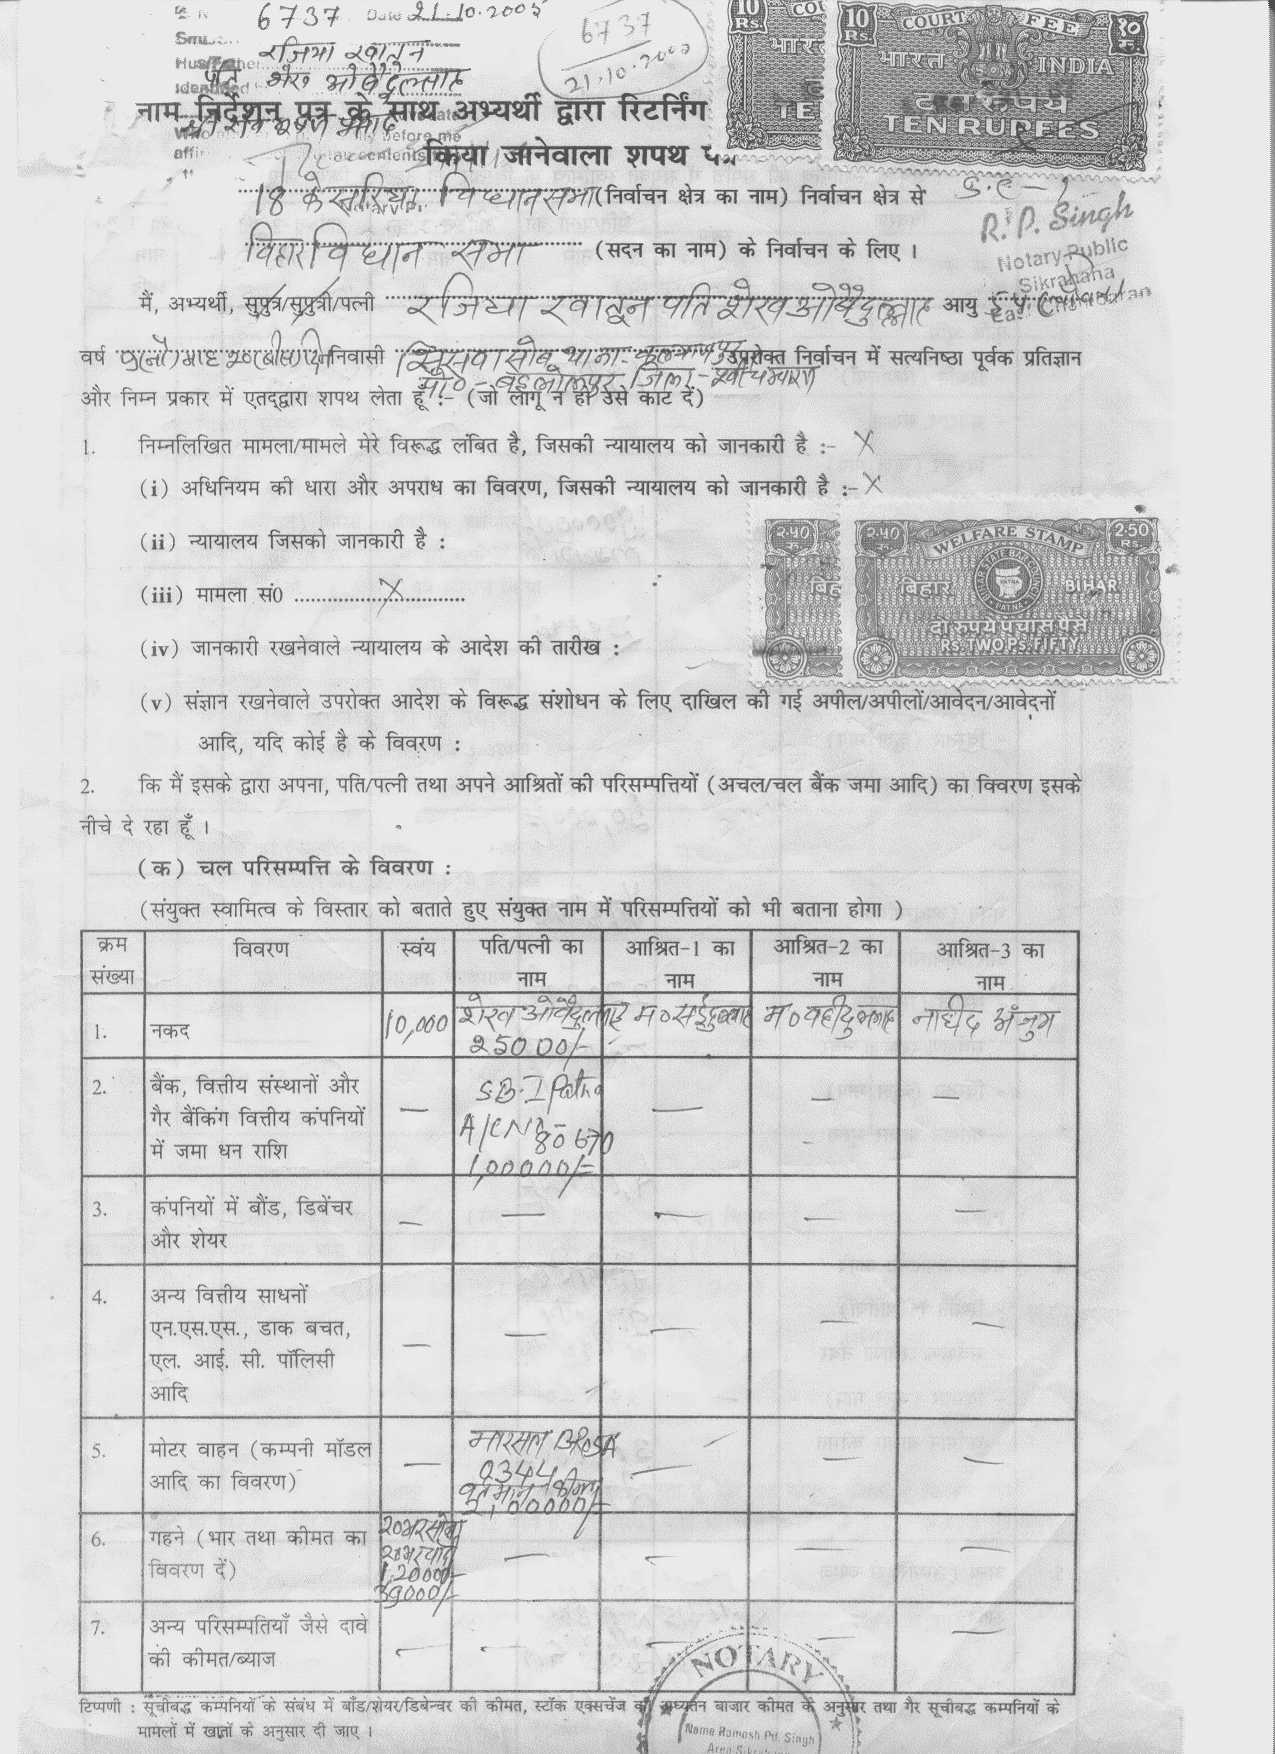 6737 Date 21.10.2005
6737
21.10.2005
रजिया खातुन
पति शेख ओवैदुल्लाह
10 Rs. COURT FEE १० रु.
भारत INDIA
दस रुपये
TEN RUPEES
नाम निर्देशन पत्र के साथ अभ्यर्थी द्वारा रिटर्निंग
किया जानेवाला शपथ
18 केसरिया विधान सभा (निर्वाचन क्षेत्र का नाम) निर्वाचन क्षेत्र से
R. P. Singh
Notary-Public
Sikrahana
बिहार विधान सभा (सदन का नाम) के निर्वाचन के लिए ।
मैं, अभ्यर्थी, सुपुत्र/सुपुत्री/पत्नी रजिया खातून पति शेख ओवैदुल्लाह आयु
वर्ष निवासी उपरोक्त निर्वाचन में सत्यनिष्ठा पूर्वक प्रतिज्ञान
जिला-
और निम्न प्रकार में एतद्द्वारा शपथ लेता हूँ :- (जो लागू न हो उसे काट दें)
1. निम्नलिखित मामला/मामले मेरे विरूद्ध लंबित है, जिसकी न्यायालय को जानकारी है :- X
(i) अधिनियम की धारा और अपराध का विवरण, जिसकी न्यायालय को जानकारी है :- X
(ii) न्यायालय जिसको जानकारी है :
(iii) मामला सं0 ........X........
(iv) जानकारी रखनेवाले न्यायालय के आदेश की तारीख :
२.५० रु. WELFARE STAMP 2.50 Rs.
बिहार BIHAR
दो रुपये पचास पैसे
RS. TWO PS. FIFTY
(v) संज्ञान रखनेवाले उपरोक्त आदेश के विरूद्ध संशोधन के लिए दाखिल की गई अपील/अपीलों/आवेदन/आवेदनों
आदि, यदि कोई है के विवरण :
2. कि मैं इसके द्वारा अपना, पति/पत्नी तथा अपने आश्रितों की परिसम्पत्तियों (अचल/चल बैंक जमा आदि) का विवरण इसके
नीचे दे रहा हूँ ।
(क) चल परिसम्पत्ति के विवरण :
(संयुक्त स्वामित्व के विस्तार को बताते हुए संयुक्त नाम में परिसम्पत्तियों को भी बताना होगा )
क्रम विवरण स्वंय पति/पत्नी का आश्रित-1 का आश्रित-2 का आश्रित-3 का
संख्या नाम नाम नाम नाम
1. नकद 10,000 शेख ओवैदुल्लाह म० सईदुल्लाह म० वहीदुल्लाह नाहीद अंजुम
25000/-
2. बैंक, वित्तीय संस्थानों और — S.B.I Patna — — —
गैर बैंकिंग वित्तीय कंपनियों A/C No- 80670
में जमा धन राशि 1,00000/=
3. कंपनियों में बौंड, डिबेंचर — — — — —
और शेयर
4. अन्य वित्तीय साधनों — — — — —
एन.एस.एस., डाक बचत,
एल. आई. सी. पॉलिसी
आदि
5. मोटर वाहन (कम्पनी मॉडल — मारसल — — —
आदि का विवरण) 2344
वर्तमान कीमत
2,00000/-
6. गहने (भार तथा कीमत का २०भर सोना — — — —
विवरण दें) २०भर चांदी
1,20000/-
39000/-
7. अन्य परिसम्पतियाँ जैसे दावे — — — — —
की कीमत/ब्याज
टिप्पणी : सूचीबद्ध कम्पनियों के संबंध में बॉंड/शेयर/डिबेन्चर की कीमत, स्टॉक एक्सचेंज की अध्यतन बाजार कीमत के अनुसार तथा गैर सूचीबद्ध कम्पनियों के
मामलों में खातों के अनुसार दी जाए ।
NOTARY
Name Ramesh Pd. Singh